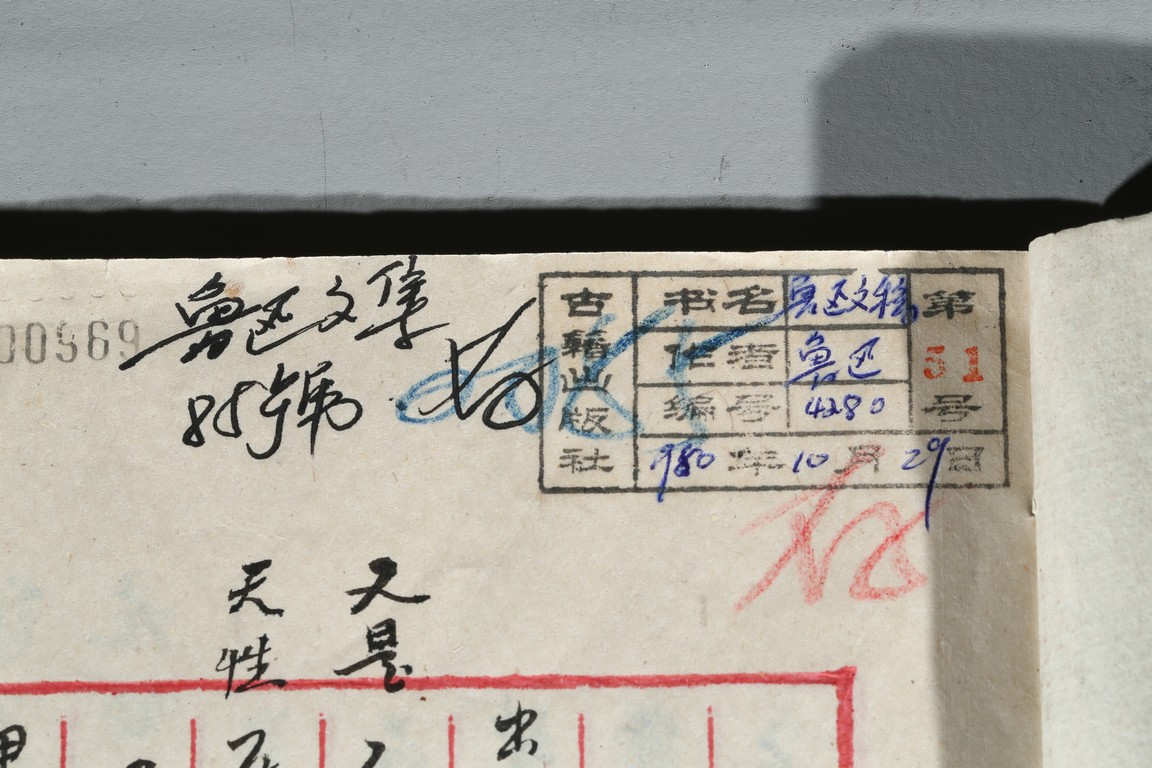 00969
魯迅文集
85號
古籍出版社
书名 魯迅文稿
作者 魯迅
编号 4280
第51号
1980年10月29日
又是
天性
出